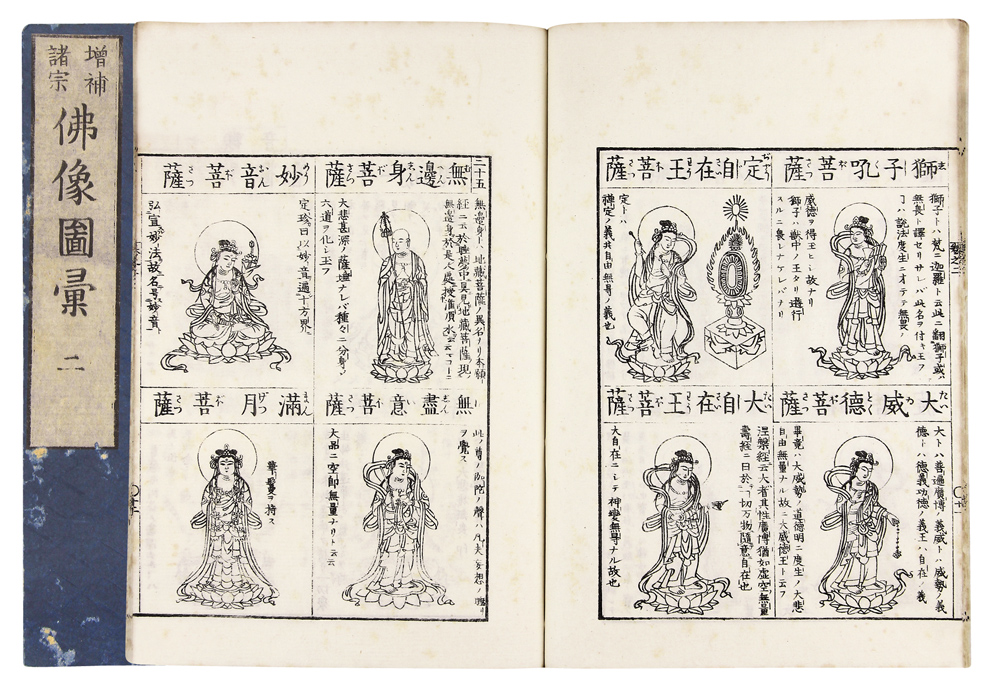 增補
諸宗
佛像圖彙 二
獅子吼菩薩
獅子トハ梵ニ迦羅ト云此ニ翻獅子或ハ
無畏ト譯セリサレバ此名ヲ付キ玉フ
ハ說法度生ニオヲテ無畏ノ
威德ヲ得玉ヒシ故ナリ
獅子ハ獣中ノ王タリ遊行
スルニ畏レナケレバナリ
定自在王菩薩
定トハ
禪定ノ義其自由無㝵ノ義也
大威德菩薩
大トハ善遍廣博ノ義威トハ威勢ノ義
德トハ德義功德ノ義王ハ自在ノ義
畢竟ハ大威勢ノ道德明ニ度生ノ大悲
自由無量ナル故ニ大威德王ト云フ
大自在王菩薩
涅槃經云大者其性廣博猶如虛空無量
壽經ニ曰於一切万物隨意自在也
大自在ニシテ神變無㝵ナル故也
三十五
無邊身菩薩
無邊身トハ地藏菩薩ノ異名ナリ本願
經ニ云於睡夢中具見地藏菩薩現
無邊身於是人處授灌頂水云云
大悲甚深ノ薩埵ナレバ種々ニ分身シ
六道ヲ化シ玉フ
妙音菩薩
定珍曰以妙音遍十方界
弘宣妙法故名号妙音
無盡意菩薩
此ノ尊ノ陀ノ聲ハ凡夫妄想ノ
ヲ覺ス
大品ニ空即無量ナリト云云
滿月菩薩
華鬘ヲ持ス